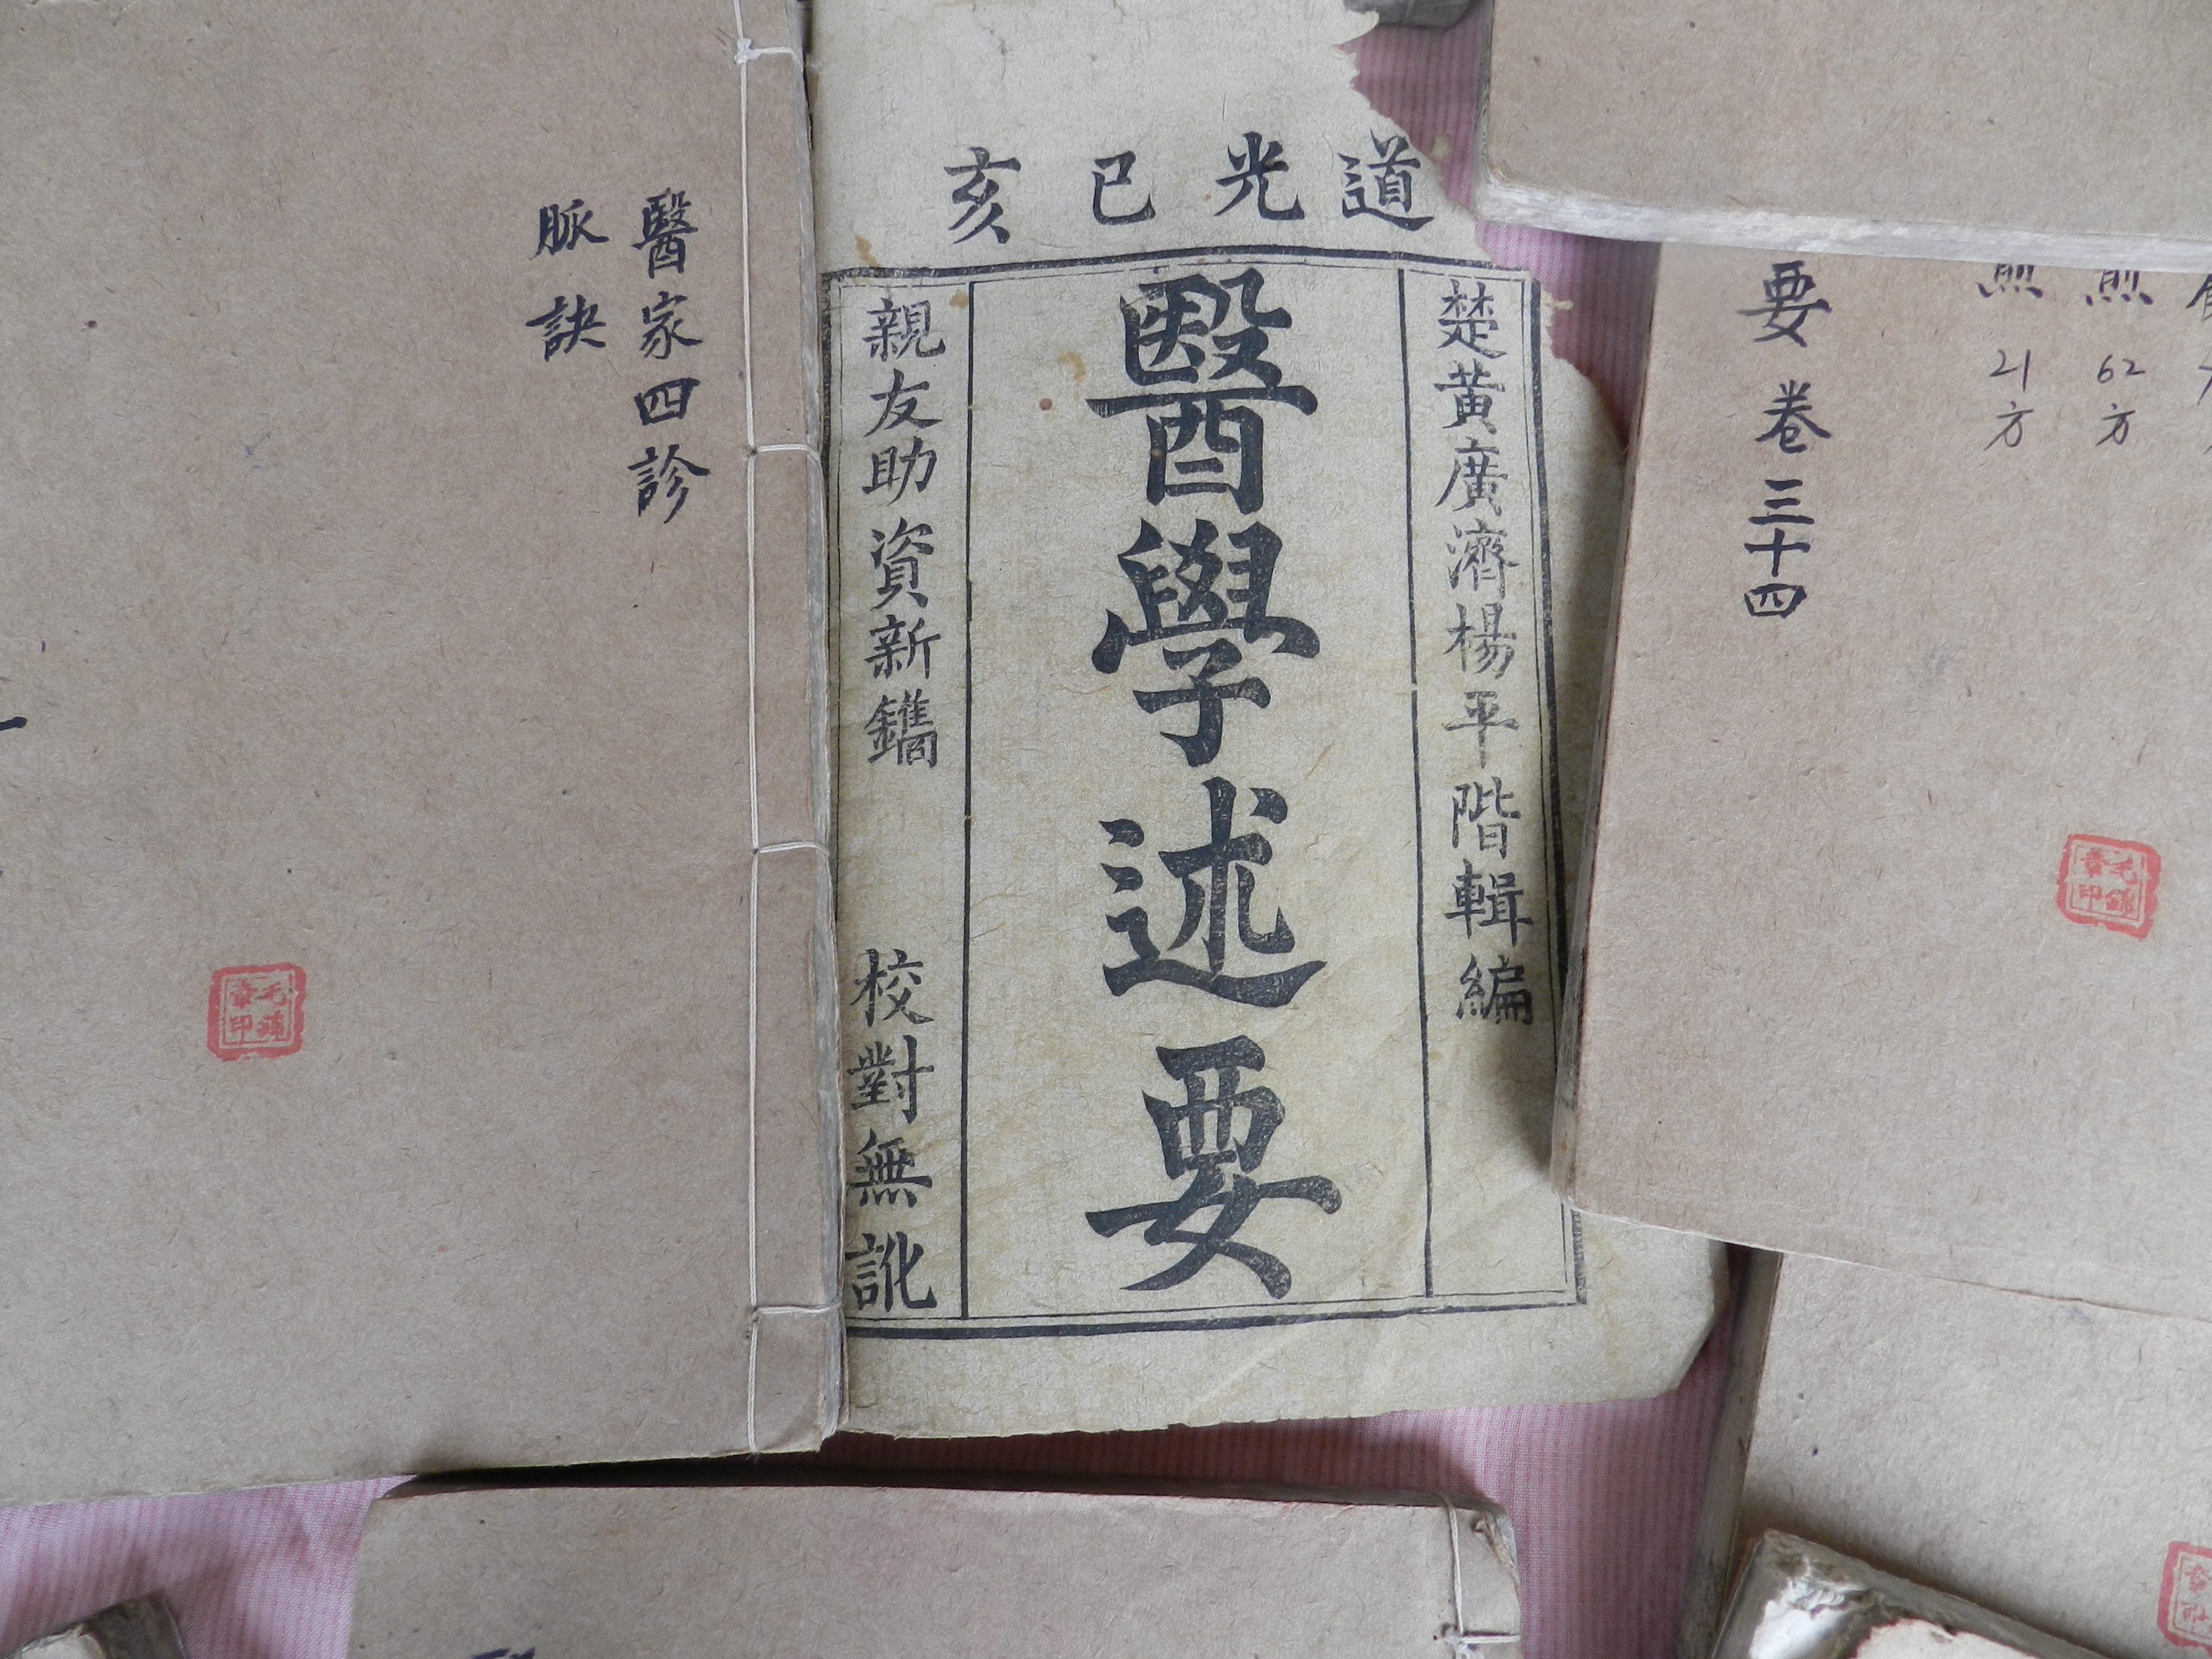 道光已亥
楚黃廣濟楊平階輯編
醫學述要
親友助資新鐫 校對無訛
醫家四診
脈訣
煎 62方
煎 21方
要 卷三十四